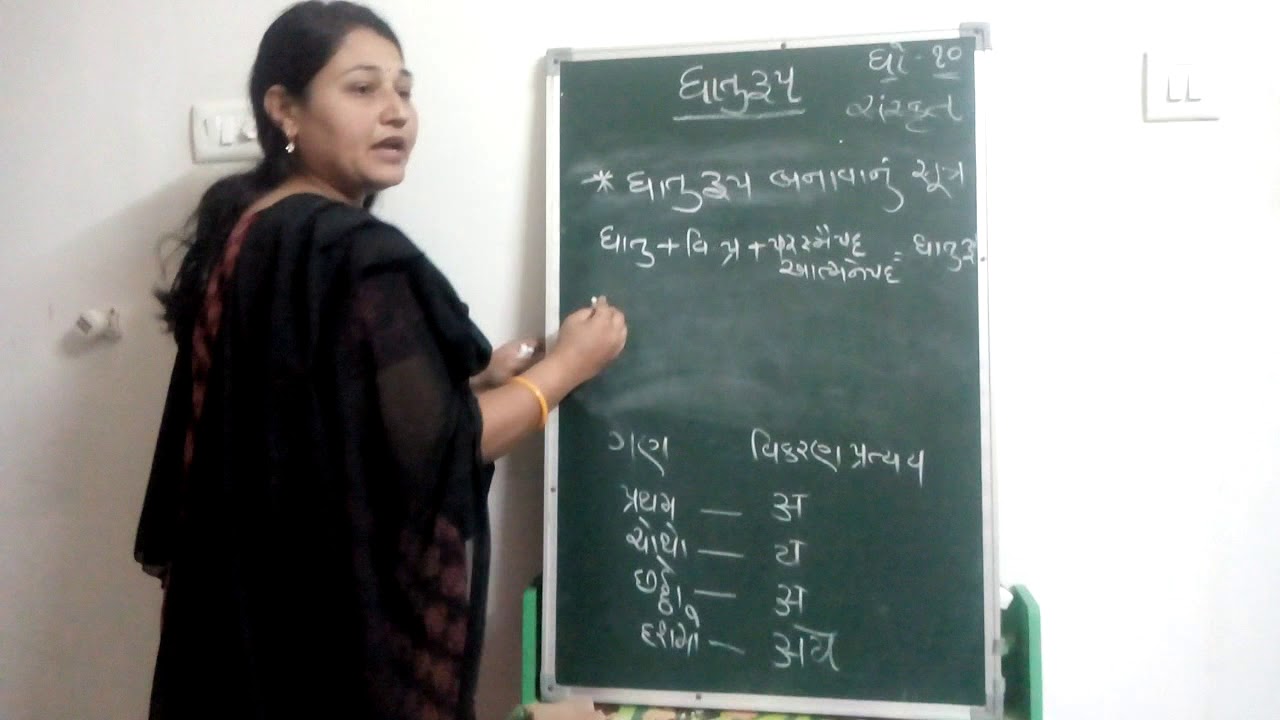 ધાતુરૂપ
ધો-૧૦
સંસ્કૃત
* ધાતુરૂપ બનાવાનું સૂત્ર
ધાતુ + વિ પ્ર + પરસ્મૈપદ
આત્મનેપદ = ધાતુરૂ
ગણ વિકરણ પ્રત્યય
પ્રથમ — अ
ચોથો — य
છઠ્ઠો — अ
દશમો — अय